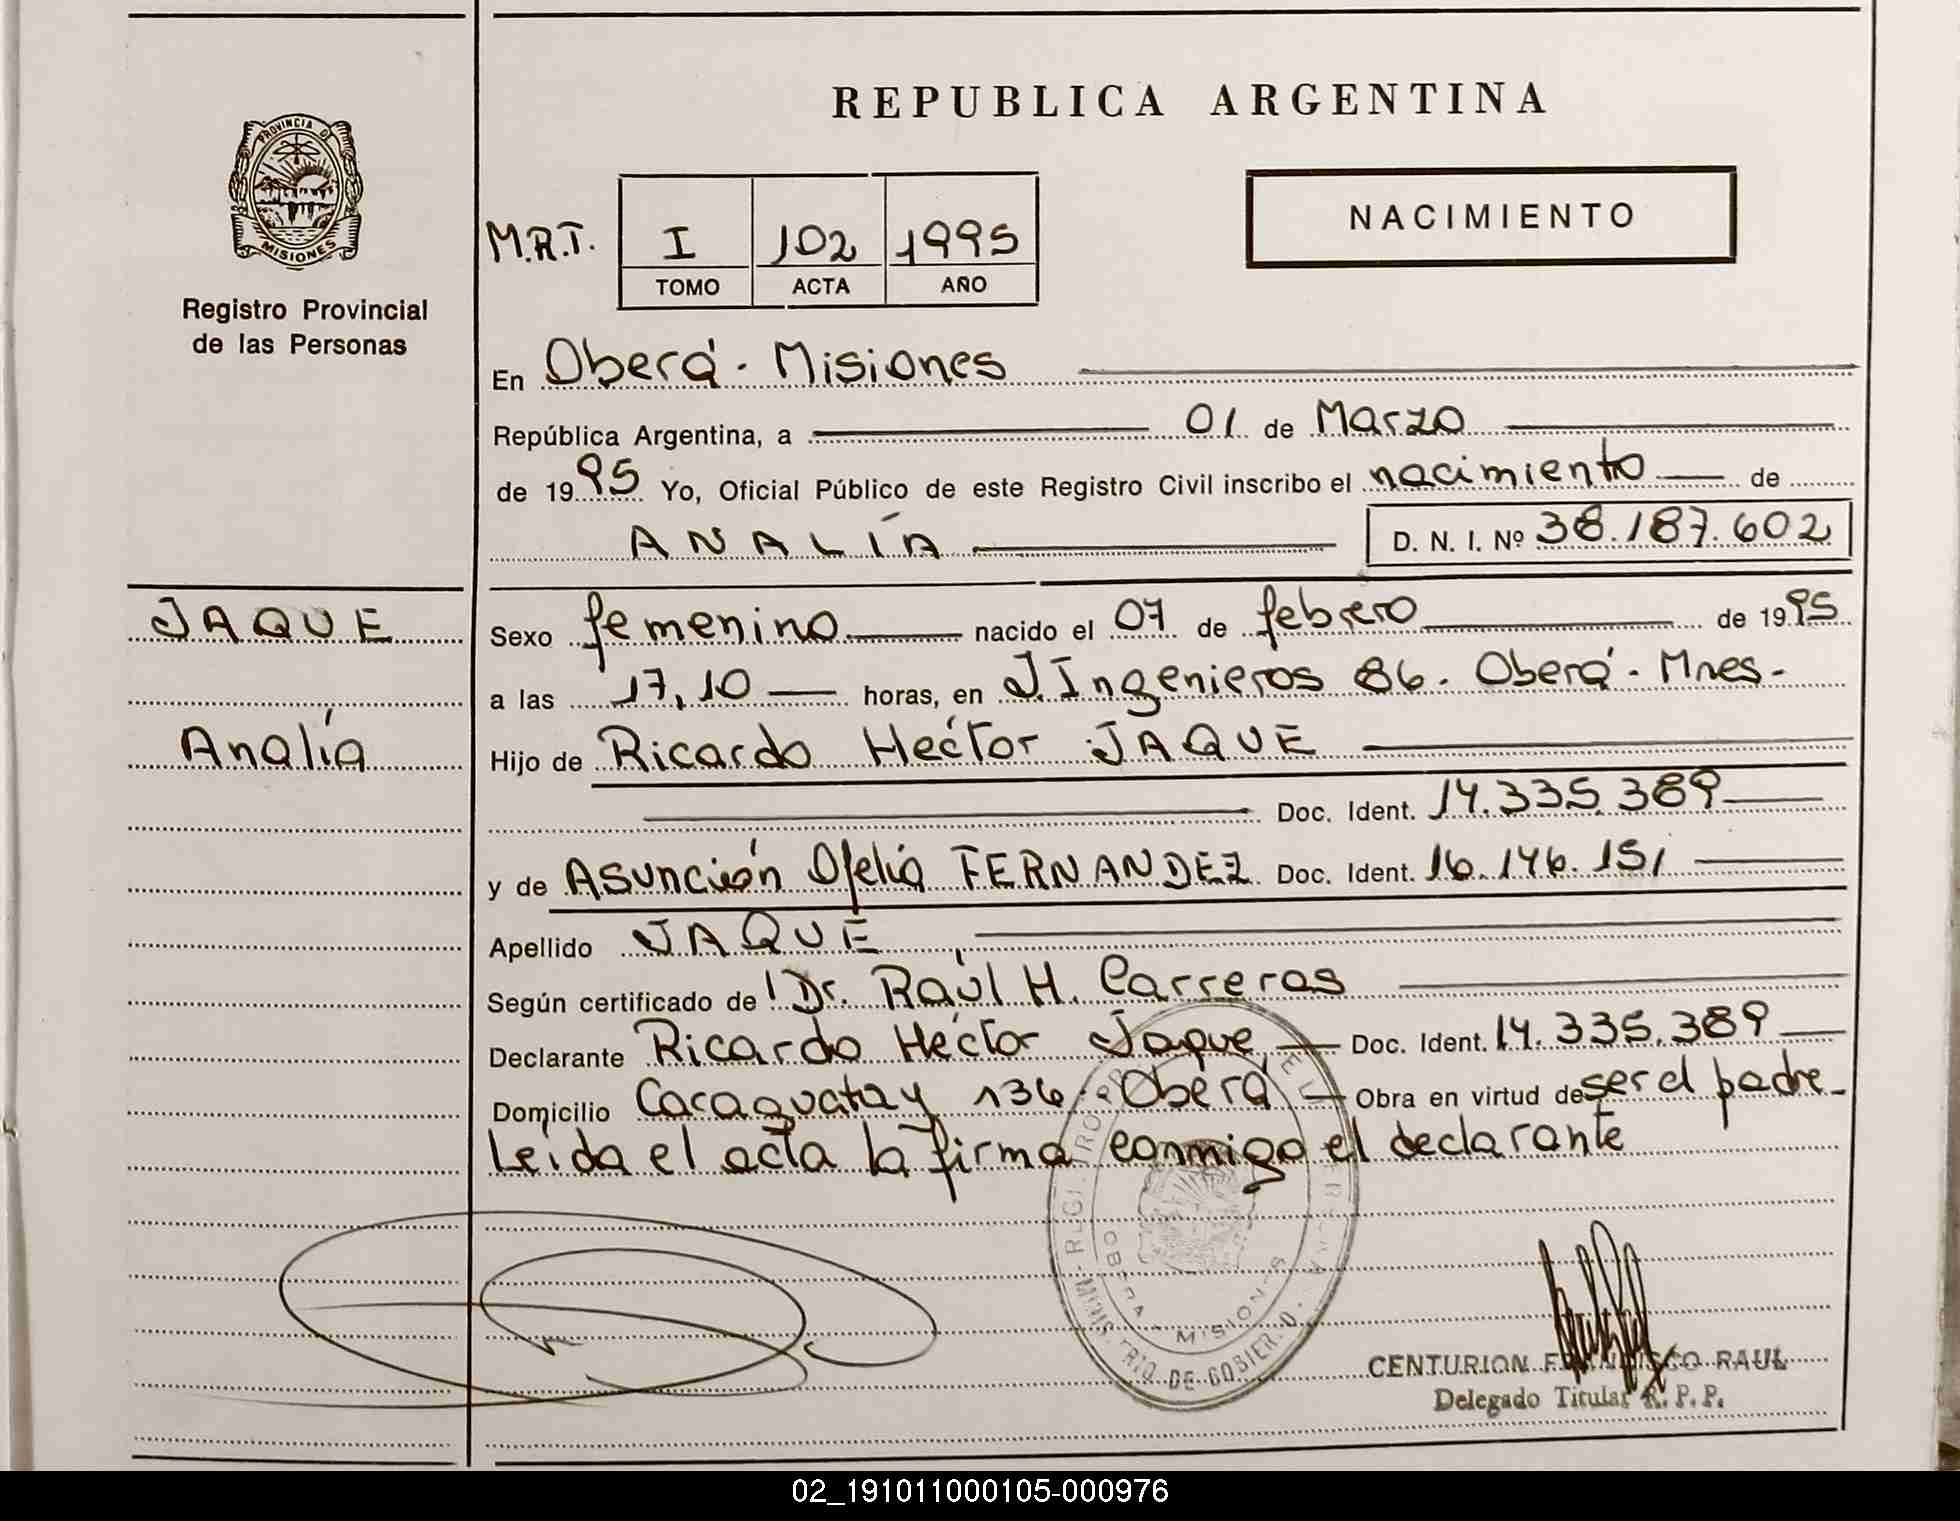 REPUBLICA ARGENTINA
PROVINCIA DE
MISIONES
Registro Provincial
de las Personas
NACIMIENTO
M.R.T. I 102 1995
TOMO ACTA AÑO
En Oberá - Misiones
República Argentina, a 01 de Marzo
de 1995 Yo, Oficial Público de este Registro Civil inscribo el nacimiento de
ANALÍA D. N. I. Nº 38.187.602
JAQUE
Analía
Sexo femenino nacido el 07 de febrero de 1995
a las 17,10 horas, en J. Ingenieros 86. Oberá - Mnes-
Hijo de Ricardo Héctor JAQUE
Doc. Ident. 14.335.389
y de Asunción Ofelia FERNANDEZ Doc. Ident. 16.146.151
Apellido JAQUE
Según certificado de Dr. Raúl H. Carreras
Declarante Ricardo Héctor Jaque Doc. Ident. 14.335.389
Domicilio Caraguatay 136 - Oberá - Obra en virtud de ser el padre-
Leída el acta la firma conmigo el declarante
OBERA MISIONES
MINISTERIO DE GOBIERNO
CENTURION FRANCISCO RAUL
Delegado Titular R. P. P.
02_191011000105-000976